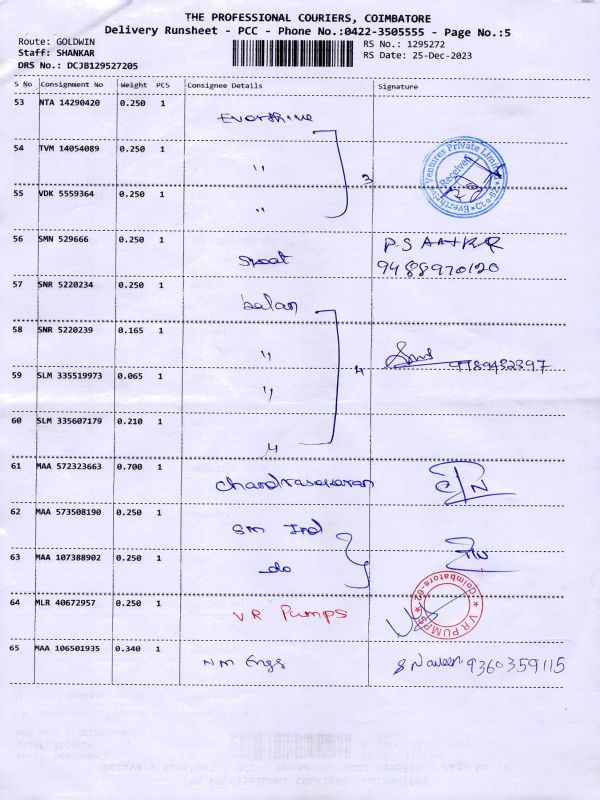 THE PROFESSIONAL COURIERS, COIMBATORE
Delivery Runsheet - PCC - Phone No.:0422-3505555 - Page No.:5
Route: GOLDWIN RS No.: 1295272
Staff: SHANKAR RS Date: 25-Dec-2023
DRS No.: DCJB129527205
S No Consignment No Weight PCS Consignee Details Signature
53 NTA 14290420 0.250 1 Evorthive
54 TVM 14054089 0.250 1 ,, 3 Ventures Private Limited Received
55 VDK 5559364 0.250 1 ,,
56 SMN 529666 0.250 1 P.SANKR
9488970120
57 SNR 5220234 0.250 1 balan
58 SNR 5220239 0.165 1 ,, 4
59 SLM 335519973 0.065 1 ,, 9789432397
60 SLM 335607179 0.210 1 ,,
61 MAA 572323663 0.700 1 chandrasekaran
62 MAA 573508190 0.250 1 SM Ind
63 MAA 107388902 0.250 1 do
64 MLR 40672957 0.250 1 VR Pumps VR PUMPS Coimbatore-62
65 MAA 106501935 0.340 1 NM Engs S Naveen 9360359115